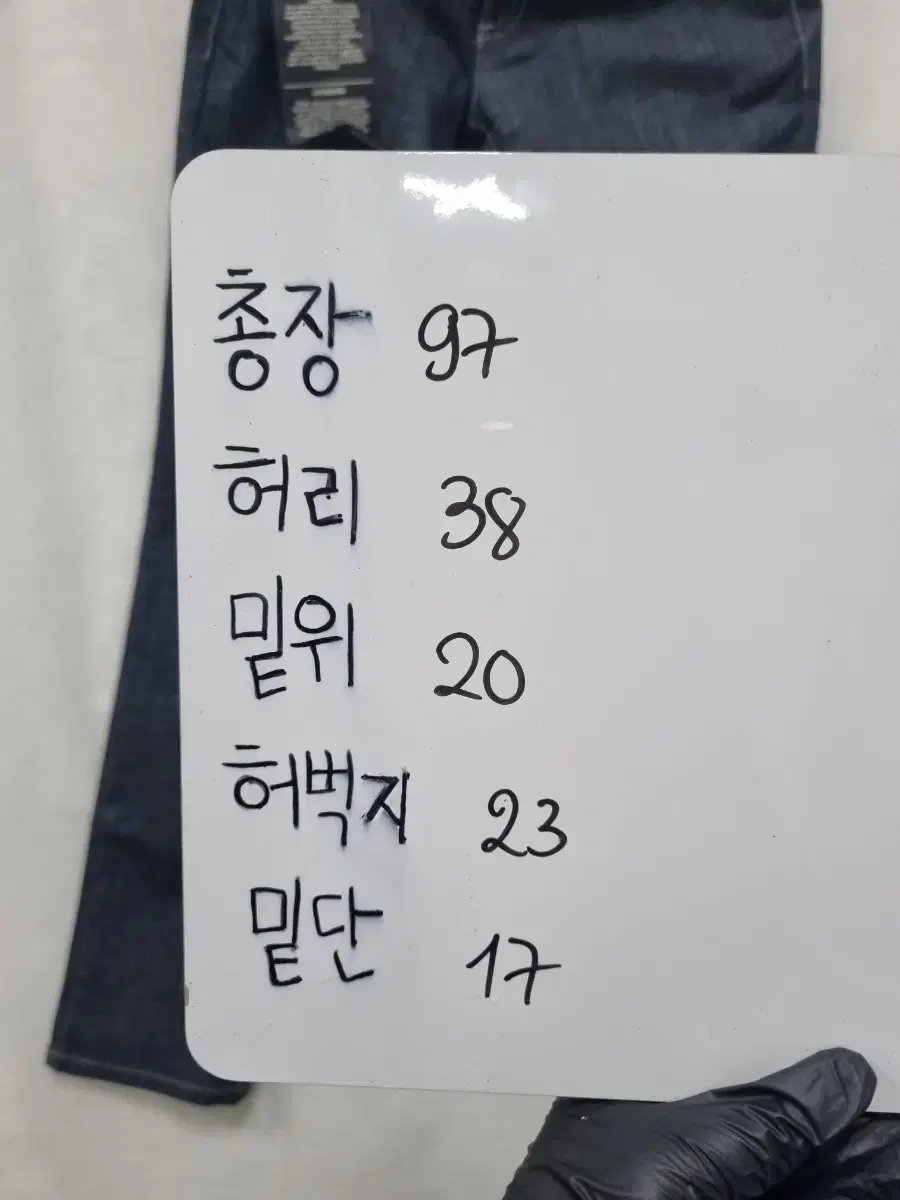 총장 97
허리 38
밑위 20
허벅지 23
밑단 17